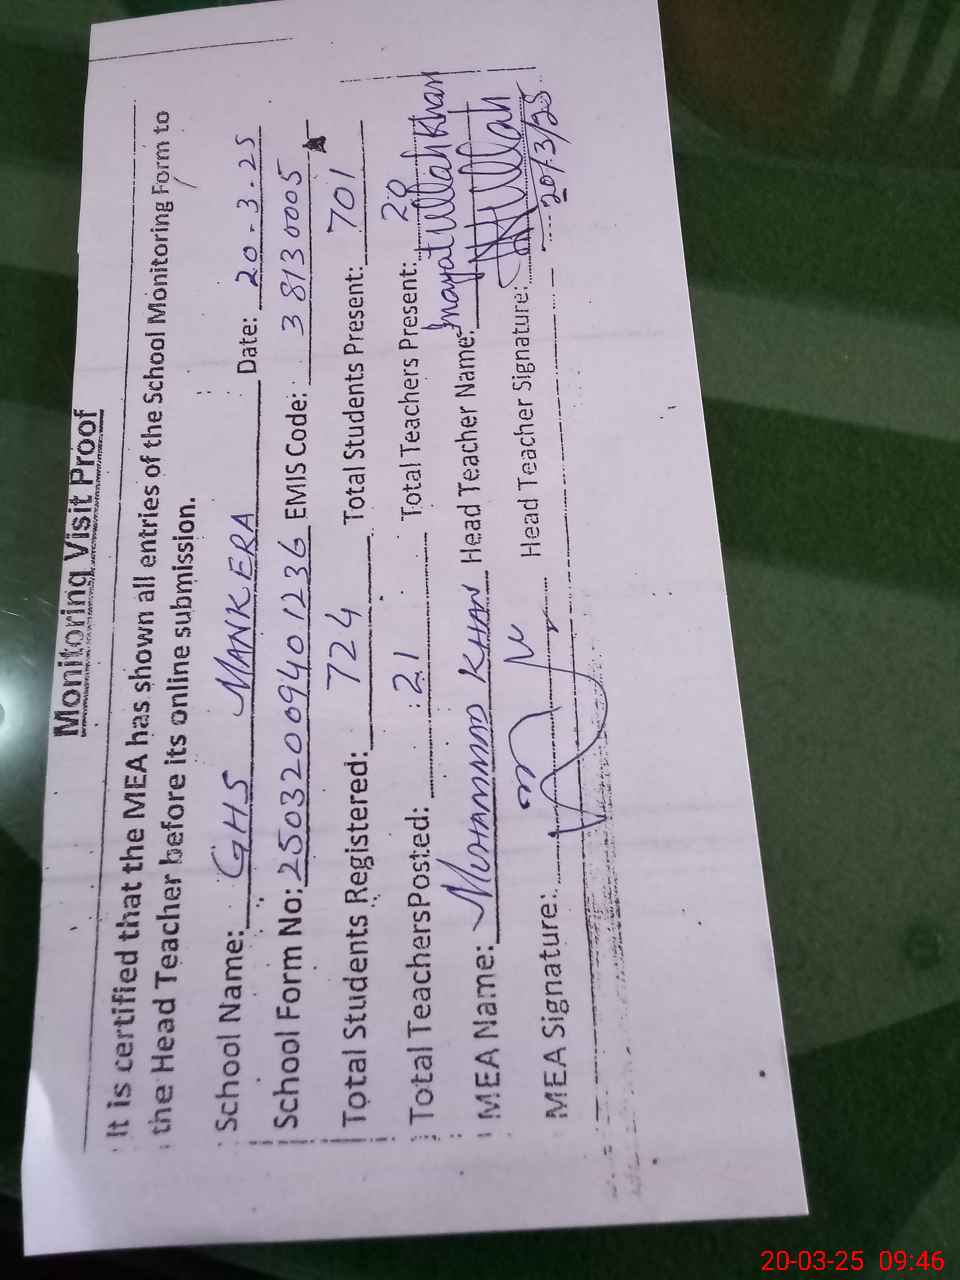 Monitoring Visit Proof
It is certified that the MEA has shown all entries of the School Monitoring Form to
the Head Teacher before its online submission.
School Name: GHS MANKERA Date: 20-3-25
School Form No: 25032009401236 EMIS Code: 38130005
Total Students Registered: 724 Total Students Present: 701
Total TeachersPosted: 21 Total Teachers Present: 20
MEA Name: MUHAMMAD KHAN Head Teacher Name: Inayat Ullah Khan
MEA Signature: Head Teacher Signature:
20/3/25
20-03-25 09:46